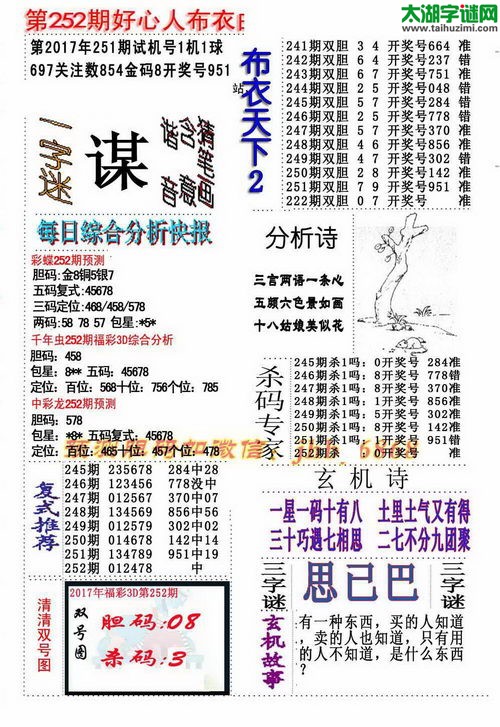 太湖字谜网
http://www.taihuzimi.com
第252期好心人布衣
第2017年251期试机号1机1球
697关注数854金码8开奖号951
站
布衣天下2
241期双胆 3 4 开奖号664 准
242期双胆 6 4 开奖号237 错
243期双胆 6 4 开奖号751 错
244期双胆 2 5 开奖号048 错
245期双胆 2 5 开奖号284 准
246期双胆 2 5 开奖号778 错
247期双胆 5 7 开奖号370 准
248期双胆 4 6 开奖号856 准
249期双胆 4 7 开奖号302 错
250期双胆 2 8 开奖号142 准
251期双胆 7 9 开奖号951 准
222期双胆 0 7 开奖号 准
一字迷
谋
猜含猪
笔意音
画
每日综合分析快报
彩蝶252期预测:
胆码:金8铜5银7
五码复式:45678
三码定位:468/458/578
两码:58 78 57 包星:*5*
千年虫252期福彩3D综合分析
胆码:458
包星:8** 五码:45678
定位:百位:568十位:756个位:785
中彩龙252期预测
胆码:578
包星:*8* 五码复式:45678
定位:百位:465十位:457个位:478
分析诗
三言两语一条心
五颜六色景如画
十八姑娘美似花
杀码专家
245期杀1吗:0开奖号 284准
246期杀1吗:8开奖号 778错
247期杀1吗:1开奖号 370准
248期杀1吗:9开奖号 856准
249期杀1吗:5开奖号 302准
250期杀1吗:8开奖号 142准
251期杀1吗:1开奖号 951错
252期杀1吗:0开奖号 准
复式推荐
245期 235678 284中28
246期 123456 778没中
247期 012567 370中07
248期 134569 856中56
249期 012579 302中02
250期 014678 142中14
251期 134789 951中19
252期 012478 中
玄机诗
一星一码十有八 土里土气又有得
三十巧遇七相思 二七不分九团聚
清清双号图
2017年福彩3D第252期
双号图
胆码:08
杀码:3
三字谜
思己巴
三字谜
玄机故事
有一种东西,买的人知道
,卖的人也知道,只有用
的人不知道,是什么东西
?